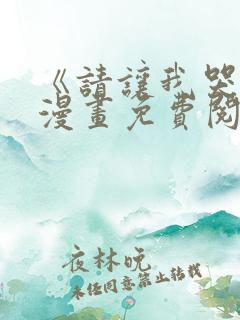 《請讓我哭
漫畫免費閱
夜林晚
未经同意禁止转载